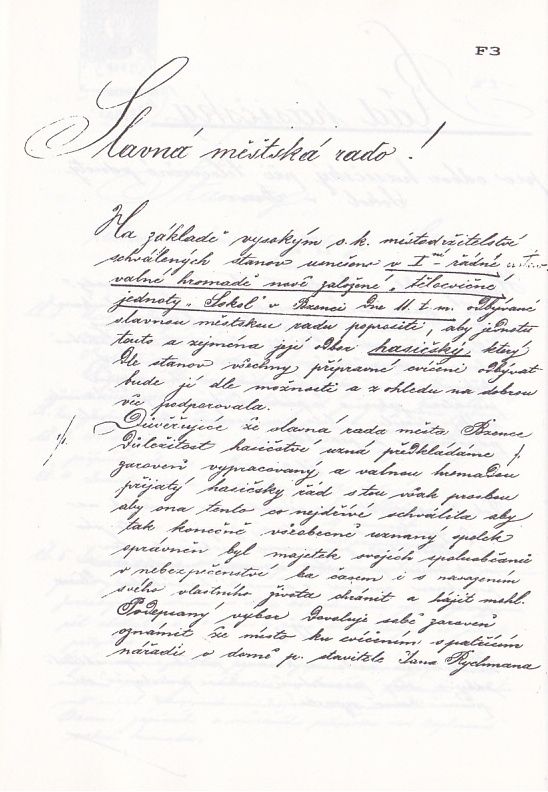 F3
Slavná městská rado!
Na základě vysokým c. k. místodržitelstvě
schválených stanov usneseno v I ní řádné
valné hromadě nově založené „tělocvičné
jednoty „Sokol" v Bzenci dne 11. t. m. odbývané
slavnou městskou radu poprositi, aby jednotu
tuto a zejména její odbor hasičský, který
dle stanov všechny přípravné cvičení odbývat
bude jí dle možnosti a z ohledu na dobrou
věc podporovala.
Důvěřujíce že slavná rada města Bzence
Důležitost hasičstvě uzná předkládáme
zároveň vypracovaný a valnou hromadou
přijatý hasičský řád s tou však prosbou
aby ona tento co nejdříve schválila aby
tak konečně všeobecně uznaný spolek
oprávněn byl majetek svojích spoluobčanů
v nebezpečenství ba časem i s nasazením
svého vlastního života chránit a hájit mohl.
Podepsaný výbor dovoluje sobě zároveň
oznámit že místo ku cvičením s patřičním
nářadím v domě p. stavitele Jana Rychmana